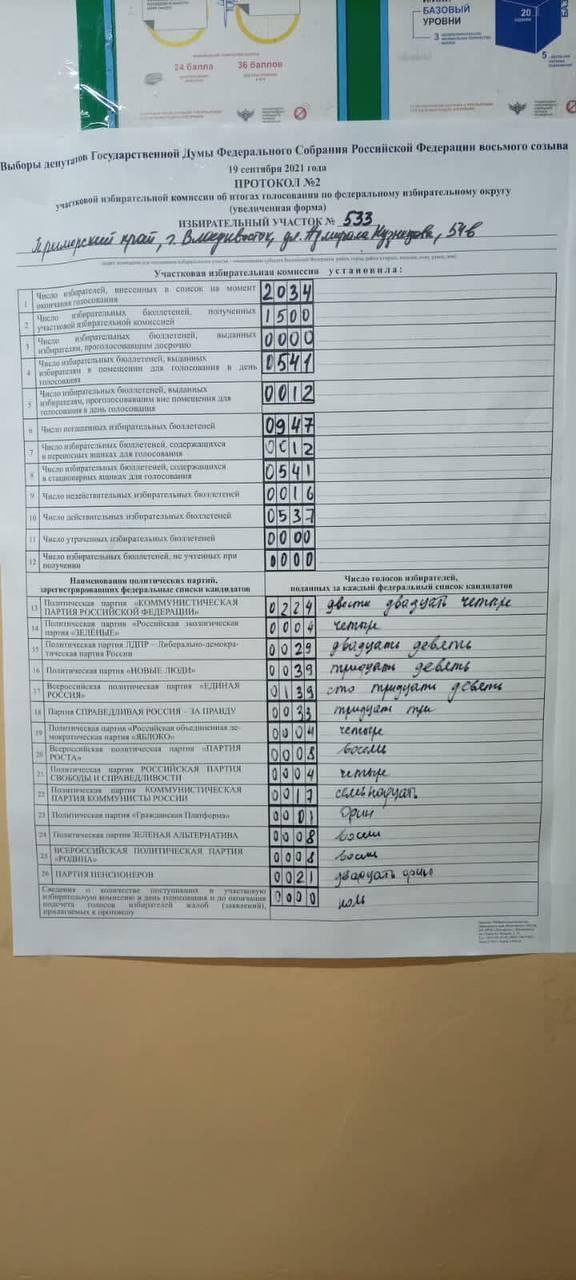 24 балла
36 баллов
БАЗОВЫЙ
УРОВНИ
3
20
5
Выборы депутатов Государственной Думы Федерального Собрания Российской Федерации восьмого созыва
19 сентября 2021 года
ПРОТОКОЛ №2
участковой избирательной комиссии об итогах голосования по федеральному избирательному округу
(увеличенная форма)
ИЗБИРАТЕЛЬНЫЙ УЧАСТОК № 533
Приморский край, г. Владивосток, ул. Адмирала Кузнецова, 54в
Участковая избирательная комиссия установила:
1 Число избирателей, внесенных в список на момент 2034
окончания голосования
2 Число избирательных бюллетеней, полученных 1500
участковой избирательной комиссией
3 Число избирательных бюллетеней, выданных 0000
избирателям, проголосовавшим досрочно
4 Число избирательных бюллетеней, выданных 0541
избирателям в помещении для голосования в день
голосования
5 Число избирательных бюллетеней, выданных 0012
избирателям, проголосовавшим вне помещения для
голосования в день голосования
6 Число погашенных избирательных бюллетеней 0947
7 Число избирательных бюллетеней, содержащихся 0012
в переносных ящиках для голосования
8 Число избирательных бюллетеней, содержащихся 0541
в стационарных ящиках для голосования
9 Число недействительных избирательных бюллетеней 0016
10 Число действительных избирательных бюллетеней 0537
11 Число утраченных избирательных бюллетеней 0000
12 Число избирательных бюллетеней, не учтенных при 0000
получении
Наименования политических партий, Число голосов избирателей,
зарегистрировавших федеральные списки кандидатов поданных за каждый федеральный список кандидатов
13 Политическая партия «КОММУНИСТИЧЕСКАЯ 0224 двести двадцать четыре
ПАРТИЯ РОССИЙСКОЙ ФЕДЕРАЦИИ»
14 Политическая партия «Российская экологическая 0004 четыре
партия «ЗЕЛЁНЫЕ»
15 Политическая партия ЛДПР – Либерально-демокра- 0029 двадцать девять
тическая партия России
16 Политическая партия «НОВЫЕ ЛЮДИ» 0039 тридцать девять
17 Всероссийская политическая партия «ЕДИНАЯ 0139 сто тридцать девять
РОССИЯ»
18 Партия СПРАВЕДЛИВАЯ РОССИЯ – ЗА ПРАВДУ 0033 тридцать три
19 Политическая партия «Российская объединенная де- 0004 четыре
мократическая партия «ЯБЛОКО»
20 Всероссийская политическая партия «ПАРТИЯ 0008 восемь
РОСТА»
21 Политическая партия РОССИЙСКАЯ ПАРТИЯ 0004 четыре
СВОБОДЫ И СПРАВЕДЛИВОСТИ
22 Политическая партия КОММУНИСТИЧЕСКАЯ 0017 семнадцать
ПАРТИЯ КОММУНИСТЫ РОССИИ
23 Политическая партия «Гражданская Платформа» 0001 один
24 Политическая партия ЗЕЛЕНАЯ АЛЬТЕРНАТИВА 0008 восемь
25 ВСЕРОССИЙСКАЯ ПОЛИТИЧЕСКАЯ ПАРТИЯ 0008 восемь
«РОДИНА»
26 ПАРТИЯ ПЕНСИОНЕРОВ 0021 двадцать один
Сведения о количестве поступивших в участковую 0000 ноль
избирательную комиссию в день голосования и до окончания
подсчета голосов избирателей жалоб (заявлений),
прилагаемых к протоколу